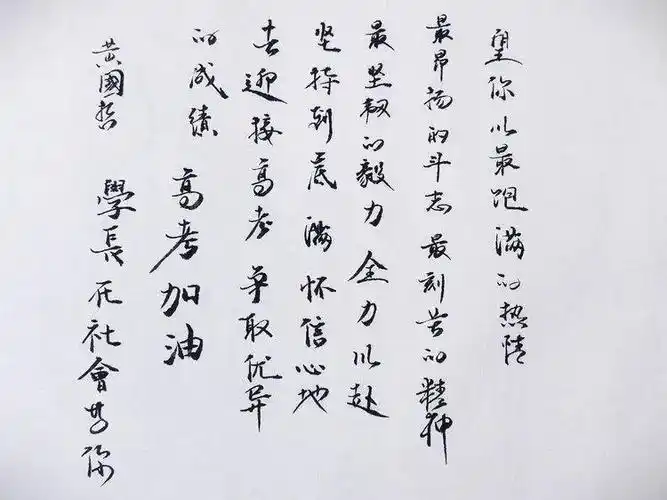 望你以最跑满的热情
最昂扬的斗志 最刻苦的精神
最坚韧的毅力 全力以赴
坚持到底 满怀信心地
去迎接高考 争取优异
的成绩 高考加油
黄國哲 學長在社會等你